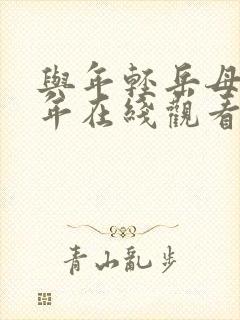 與年輕岳母
年在綫觀看
青山亂步